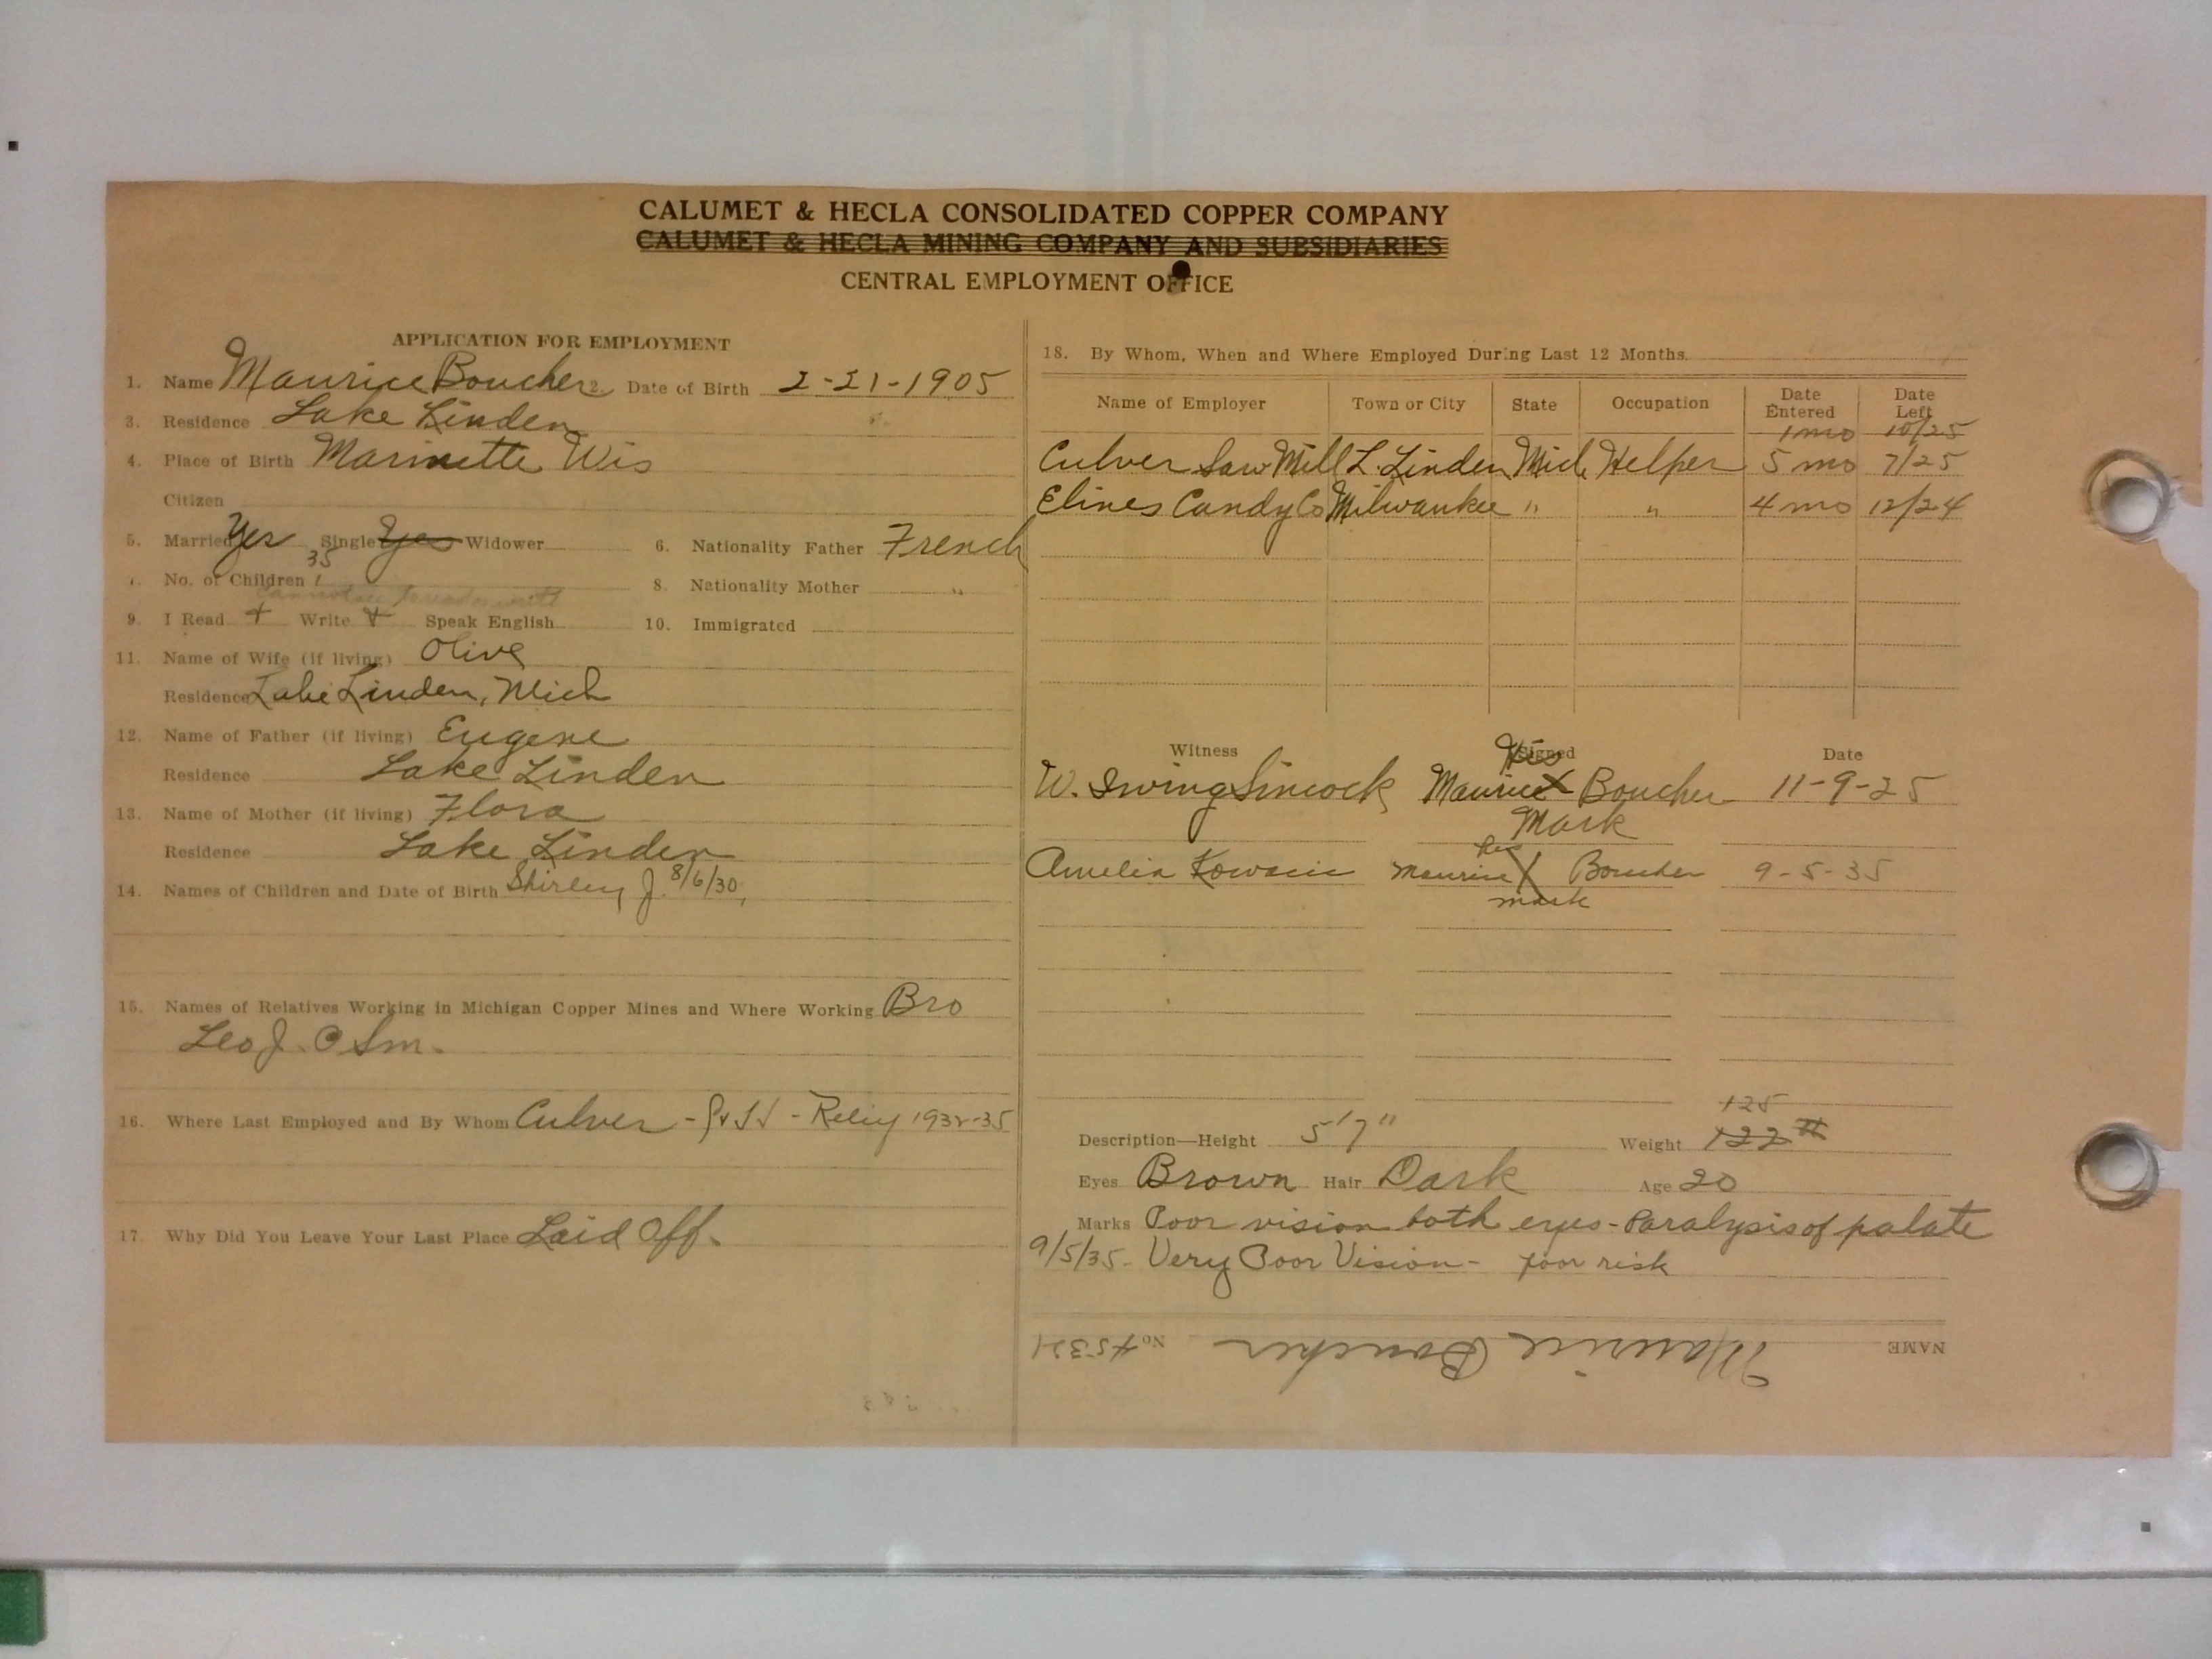 CALUMET & HECLA CONSOLIDATED COPPER COMPANY
CALUMET & HECLA MINING COMPANY AND SUBSIDIARIES
CENTRAL EMPLOYMENT OFFICE
APPLICATION FOR EMPLOYMENT
1. Name Maurice Boucher 2. Date of Birth 2-21-1905
3. Residence Lake Linden
4. Place of Birth Marinette Wis
Citizen
5. Married Yes Single Yes Widower 6. Nationality Father French
35
7. No. of Children 1 8. Nationality Mother "
cannot read or write
9. I Read + Write + Speak English 10. Immigrated
11. Name of Wife (if living) Olive
Residence Lake Linden, Mich
12. Name of Father (if living) Eugene
Residence Lake Linden
13. Name of Mother (if living) Flora
Residence Lake Linden
14. Names of Children and Date of Birth Shirley J. 8/6/30,
15. Names of Relatives Working in Michigan Copper Mines and Where Working Bro
Leo J. C Sm.
16. Where Last Employed and By Whom Culver - 1932-35
17. Why Did You Leave Your Last Place Laid Off.
18. By Whom, When and Where Employed During Last 12 Months
Name of Employer Town or City State Occupation Date Entered Date Left
1 mo 10/25
Culver Saw Mill L. Linden Mich Helper 5 mo 7/25
Elines Candy Co Milwaukee " " 4 mo 12/24
Witness Signed Date
His
W. Irving Sincock Maurice X Boucher 11-9-25
Mark
his
Amelia Maurice X Boucher 9-5-35
mark
125
Description—Height 5'7" Weight 122 #
Eyes Brown Hair Dark Age 20
Marks Poor vision both eyes - Paralysis of palate
9/5/35 - Very Poor Vision - poor risk
NAME Maurice Boucher No. 45321